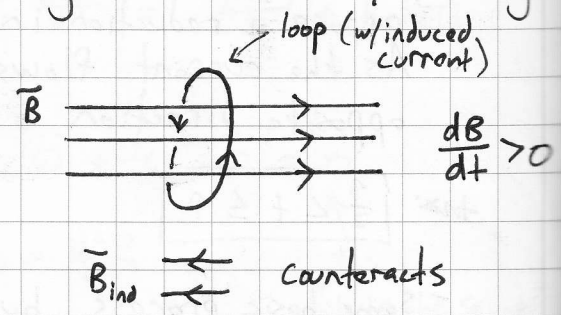 loop (w/induced
current)
B̅
dB
dt
>0
B̅ind
Counteracts